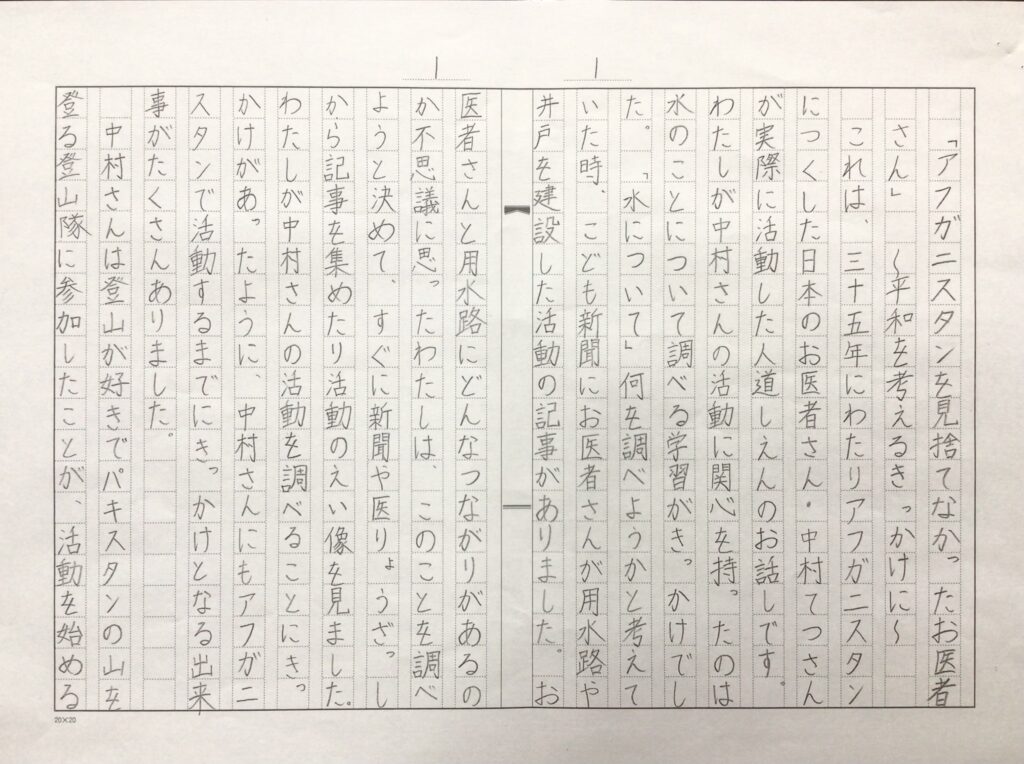 「アフガニスタンを見捨てなかったお医者
さん」　～平和を考えるきっかけに～
これは、三十五年にわたりアフガニスタン
につくした日本のお医者さん・中村てつさん
が実際に活動した人道しえんのお話しです。
わたしが中村さんの活動に関心を持ったのは
水のことについて調べる学習がきっかけでし
た。「水について」何を調べようかと考えて
いた時、こども新聞にお医者さんが用水路や
井戸を建設した活動の記事がありました。お
医者さんと用水路にどんなつながりがあるの
か不思議に思ったわたしは、このことを調べ
ようと決めて、すぐに新聞や医りょうざっし
から記事を集めたり活動のえい像を見ました。
わたしが中村さんの活動を調べることにきっ
かけがあったように、中村さんにもアフガニ
スタンで活動するまでにきっかけとなる出来
事がたくさんありました。
中村さんは登山が好きでパキスタンの山を
登る登山隊に参加したことが、活動を始める
1
1
20×20